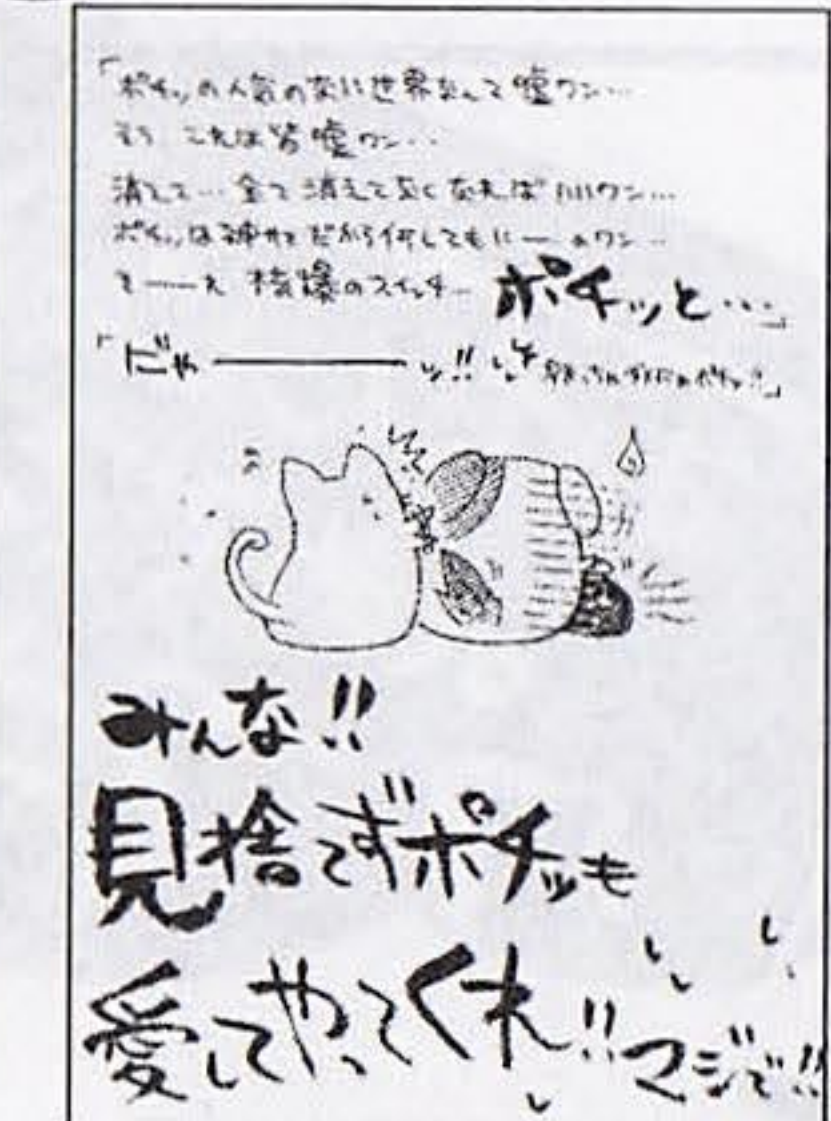 「ポチッの人気の無い世界なんて嘘ワン…
そう これは皆嘘ワン…
消えて…全て消えて無くなればいいワン…
ポチッは神サマだから何してもいーのワン…
てーえ 核爆のスイッチ… ポチッと…」
「にゃーッ!!
みんな!!
見捨てずポチッも
愛してやってくれ!! マジで!!